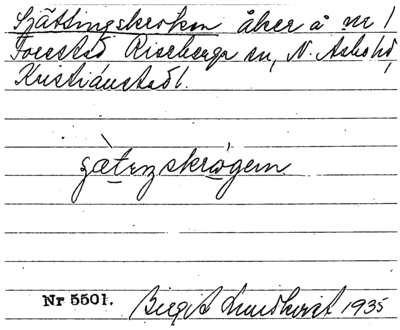 Gjättingskroken åker å nr 1
Forestad Riseberga sn, N. Åsbo hd,
Kristianstad l.
gætɪŋskrogen
Nr 5501. Birgit Lundkvist 1935